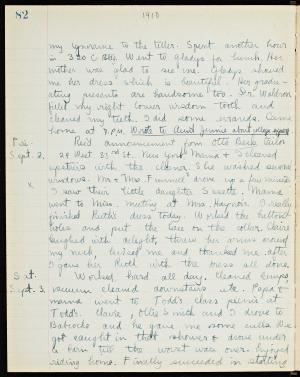 82 1910
my ignorance to the teller. Spent another hour
in 320 C. Bldg. Went to Gladys for lunch. Her
mother was glad to see me. Gladys showed
me her dress which is beautiful. Her gradu-
ating presents are handsome too. Dr. Waldron
filled my right lower wisdom tooth and
cleaned my teeth. I did some errands. Came
home at 7 P.M. Wrote to Aunt Jennie about
Fri. Rec'd announcement from Otto Beck, tailor
Sept. 2. 29 West 33rd St. New York. Mama & I cleaned
upstairs with the cleaner. She washed several
windows. Mr & Mrs. Funnel drove up a few minutes
x I saw their little daughter Susette. Mama
went to Miss. meeting at Mrs. Haynor's. I really
finished Ruth's dress today. Worked the button
holes and put the lace on the collar. Claire
laughed with delight, threw her arms around
my neck, kissed me and thanked me after
I gave her Ruth with the dress all done.
Sat. Worked hard all day. Cleaned lamps,
Sept. 3. vacuum cleaned downstairs etc. Papa &
mama went to Todd's class picnic at
Todd's. Claire, Otis Smith and I drove to
Babcocks and he gave me some culls. We
got caught in that shower & drove under
a barn till the worst was over. Enjoyed
riding home. Finally succeeded in